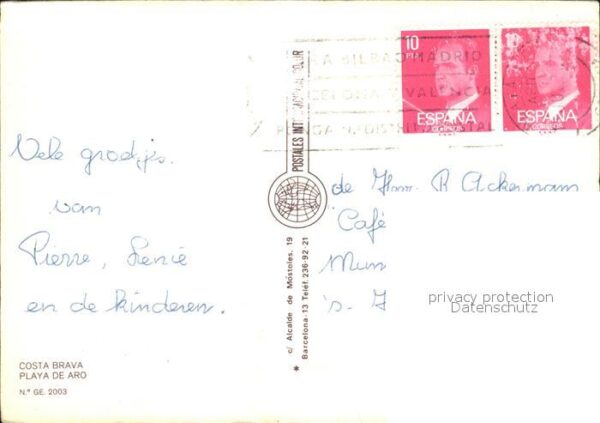 Vele groetjes.
van
Pierre, Lenie
en de kinderen.
COSTA BRAVA
PLAYA DE ARO
N.º GE. 2003
POSTALES
c/ Alcalde de Móstoles, 19
Barcelona-13 Teléf. 236-92-21
BILBAO MADRID
VALENCIA
10
PTA
ESPAÑA
CORREOS
ESPAÑA
CORREOS
de Heer R Ackermam
Café
Mun
's-
privacy protection
Datenschutz